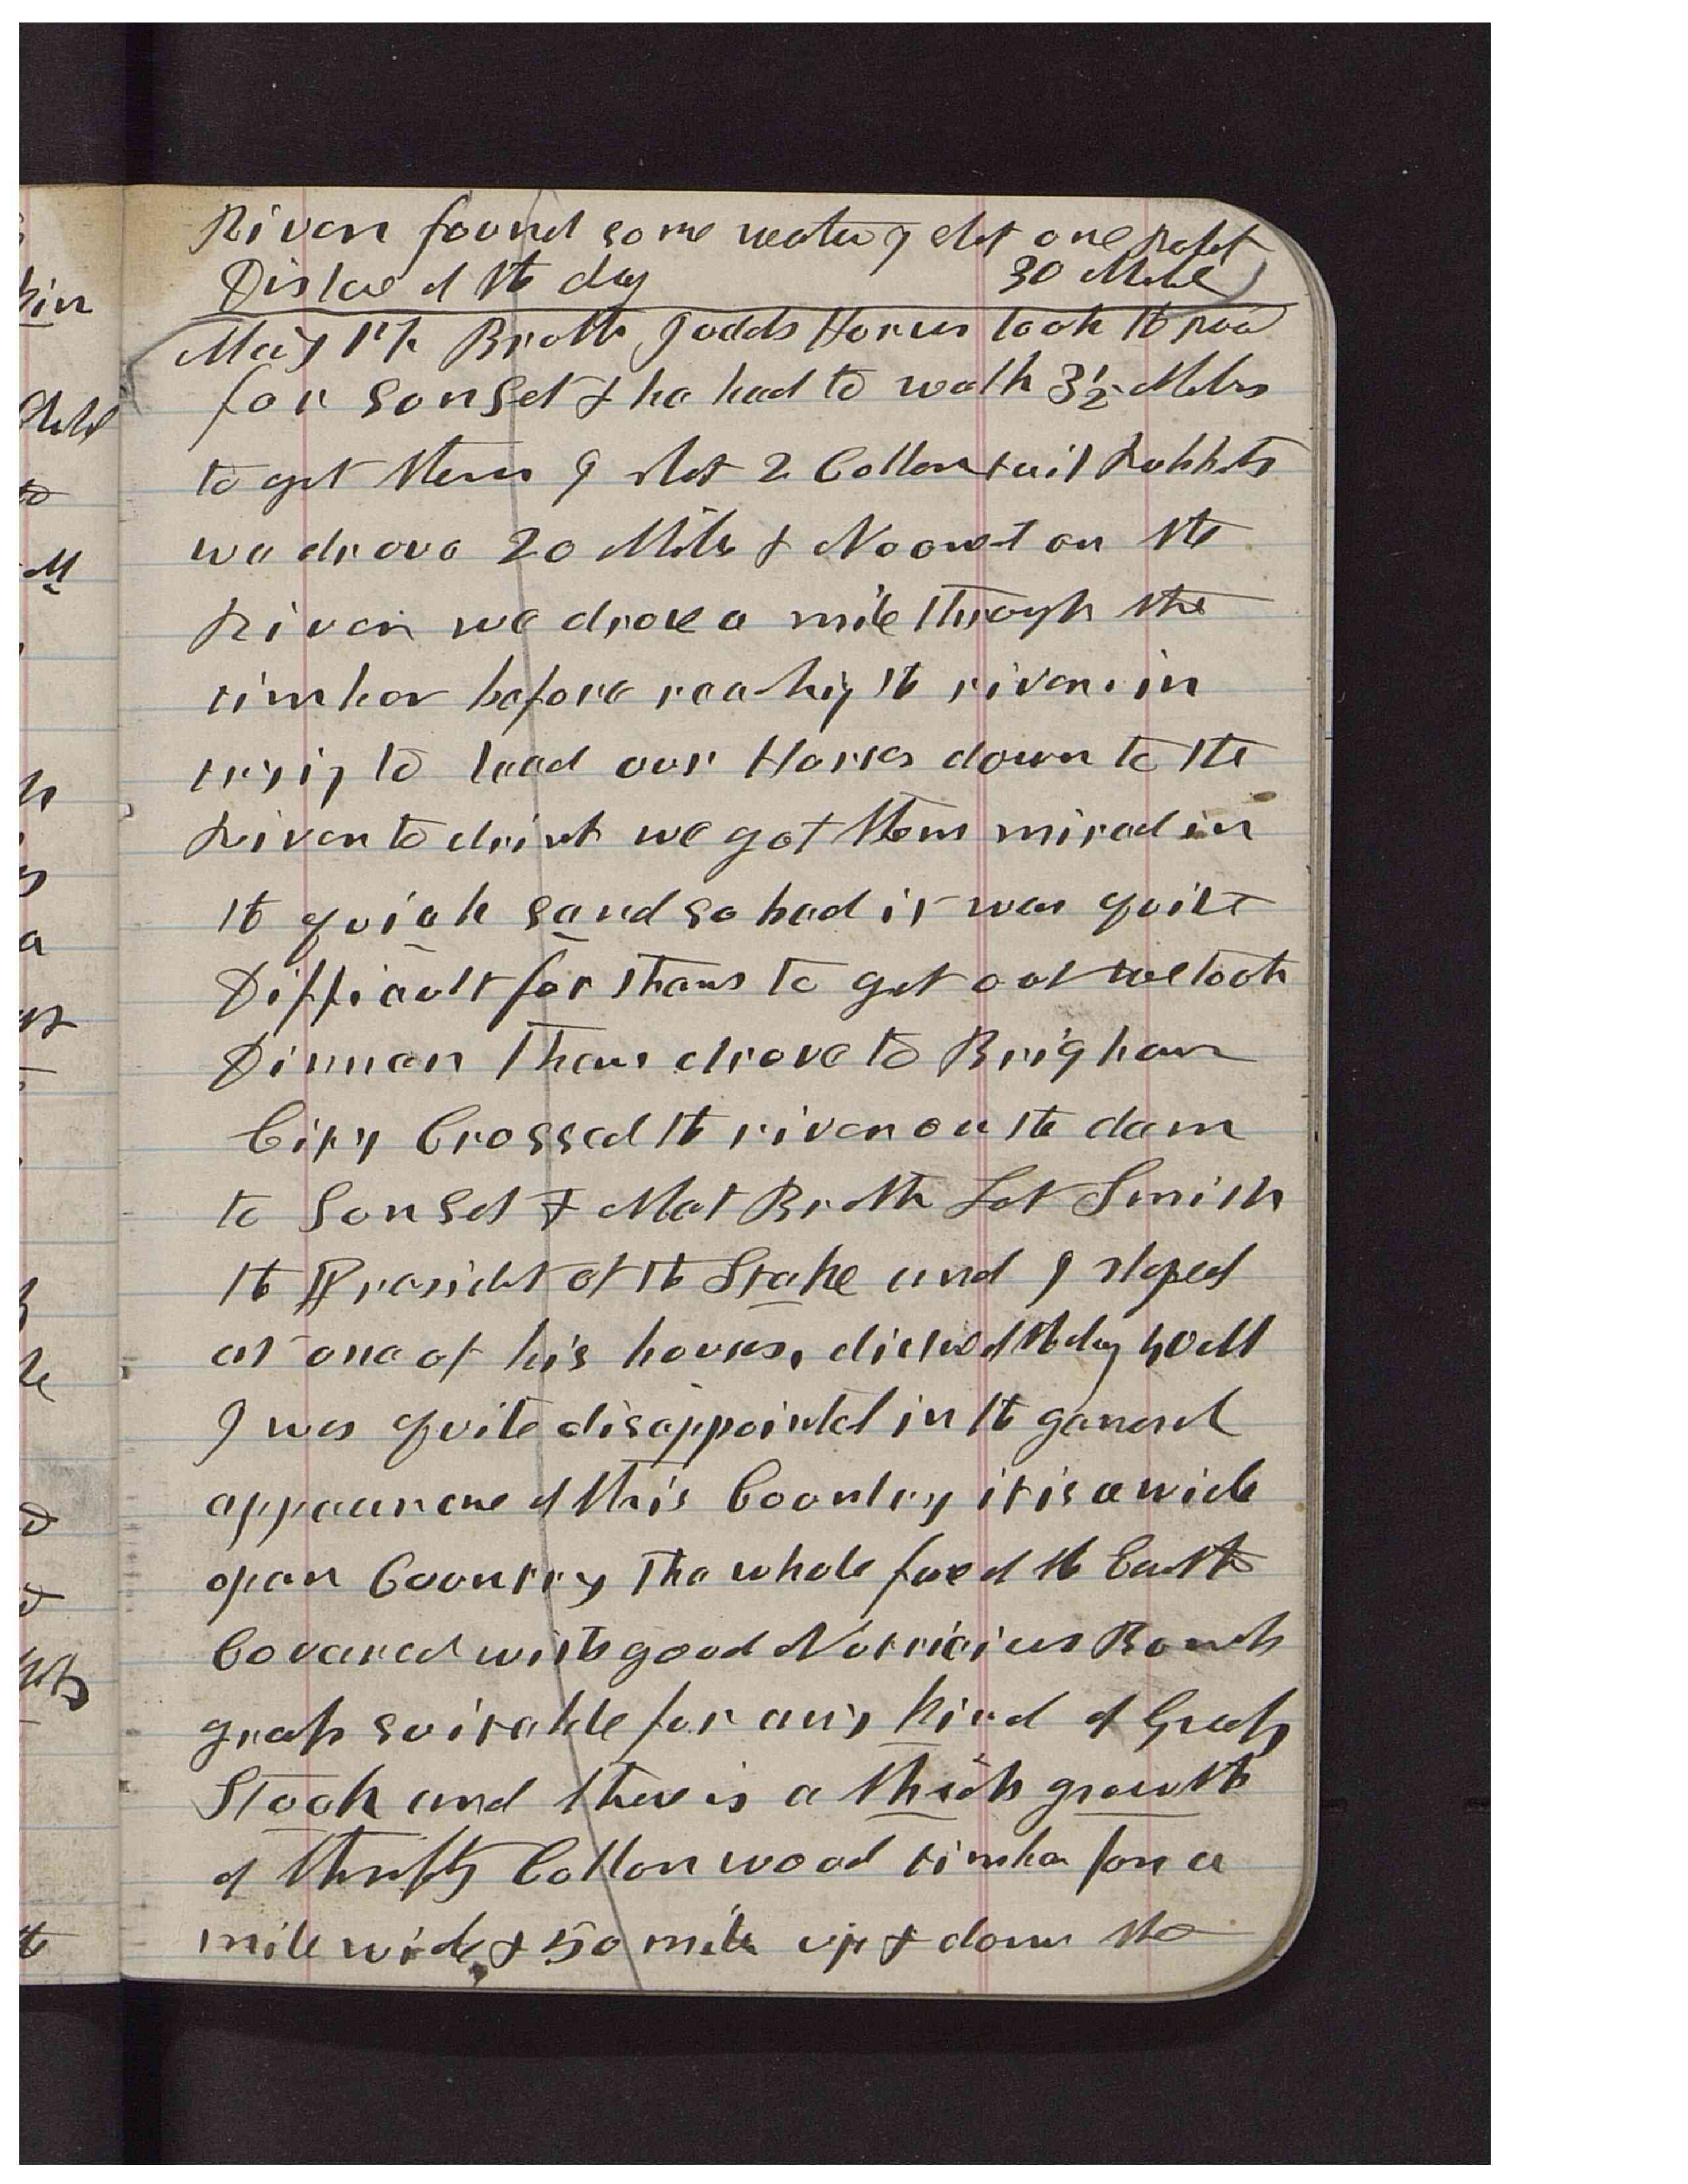 River found some water I shot one Rabit
Distance of the day 30 Miles
May 17, Brothr Judds Horses took the road
for Sunset & he had to walk 3½ Miles
to get them I shot 2 Cottontail Rabbits
we drove 20 Miles & Nooned on the
River we drove a mile through the
timber before reachig the river. in
trying to lead our Horses down to the
River to drink we got them mired in
the quick sand so bad it was quite
Difficult for them to get out we took
Dinner then drove to Brigham
City Crossed the river on the dam
to Sunset & Met Brothr Lot Smith
the Presidet of the Stake and I stoped
at one of his houses, distance of the day 40 M
I was quite disappointed in the general
appearance of this Country it is a wide
open Country The whole face of the Earth
Covered with good Nutricius Bunch
grass suitable for any kind of Grass
Stock and there is a thick growth
of thrifty Cotton wood timber for a
mile wide & 50 miles up & down the